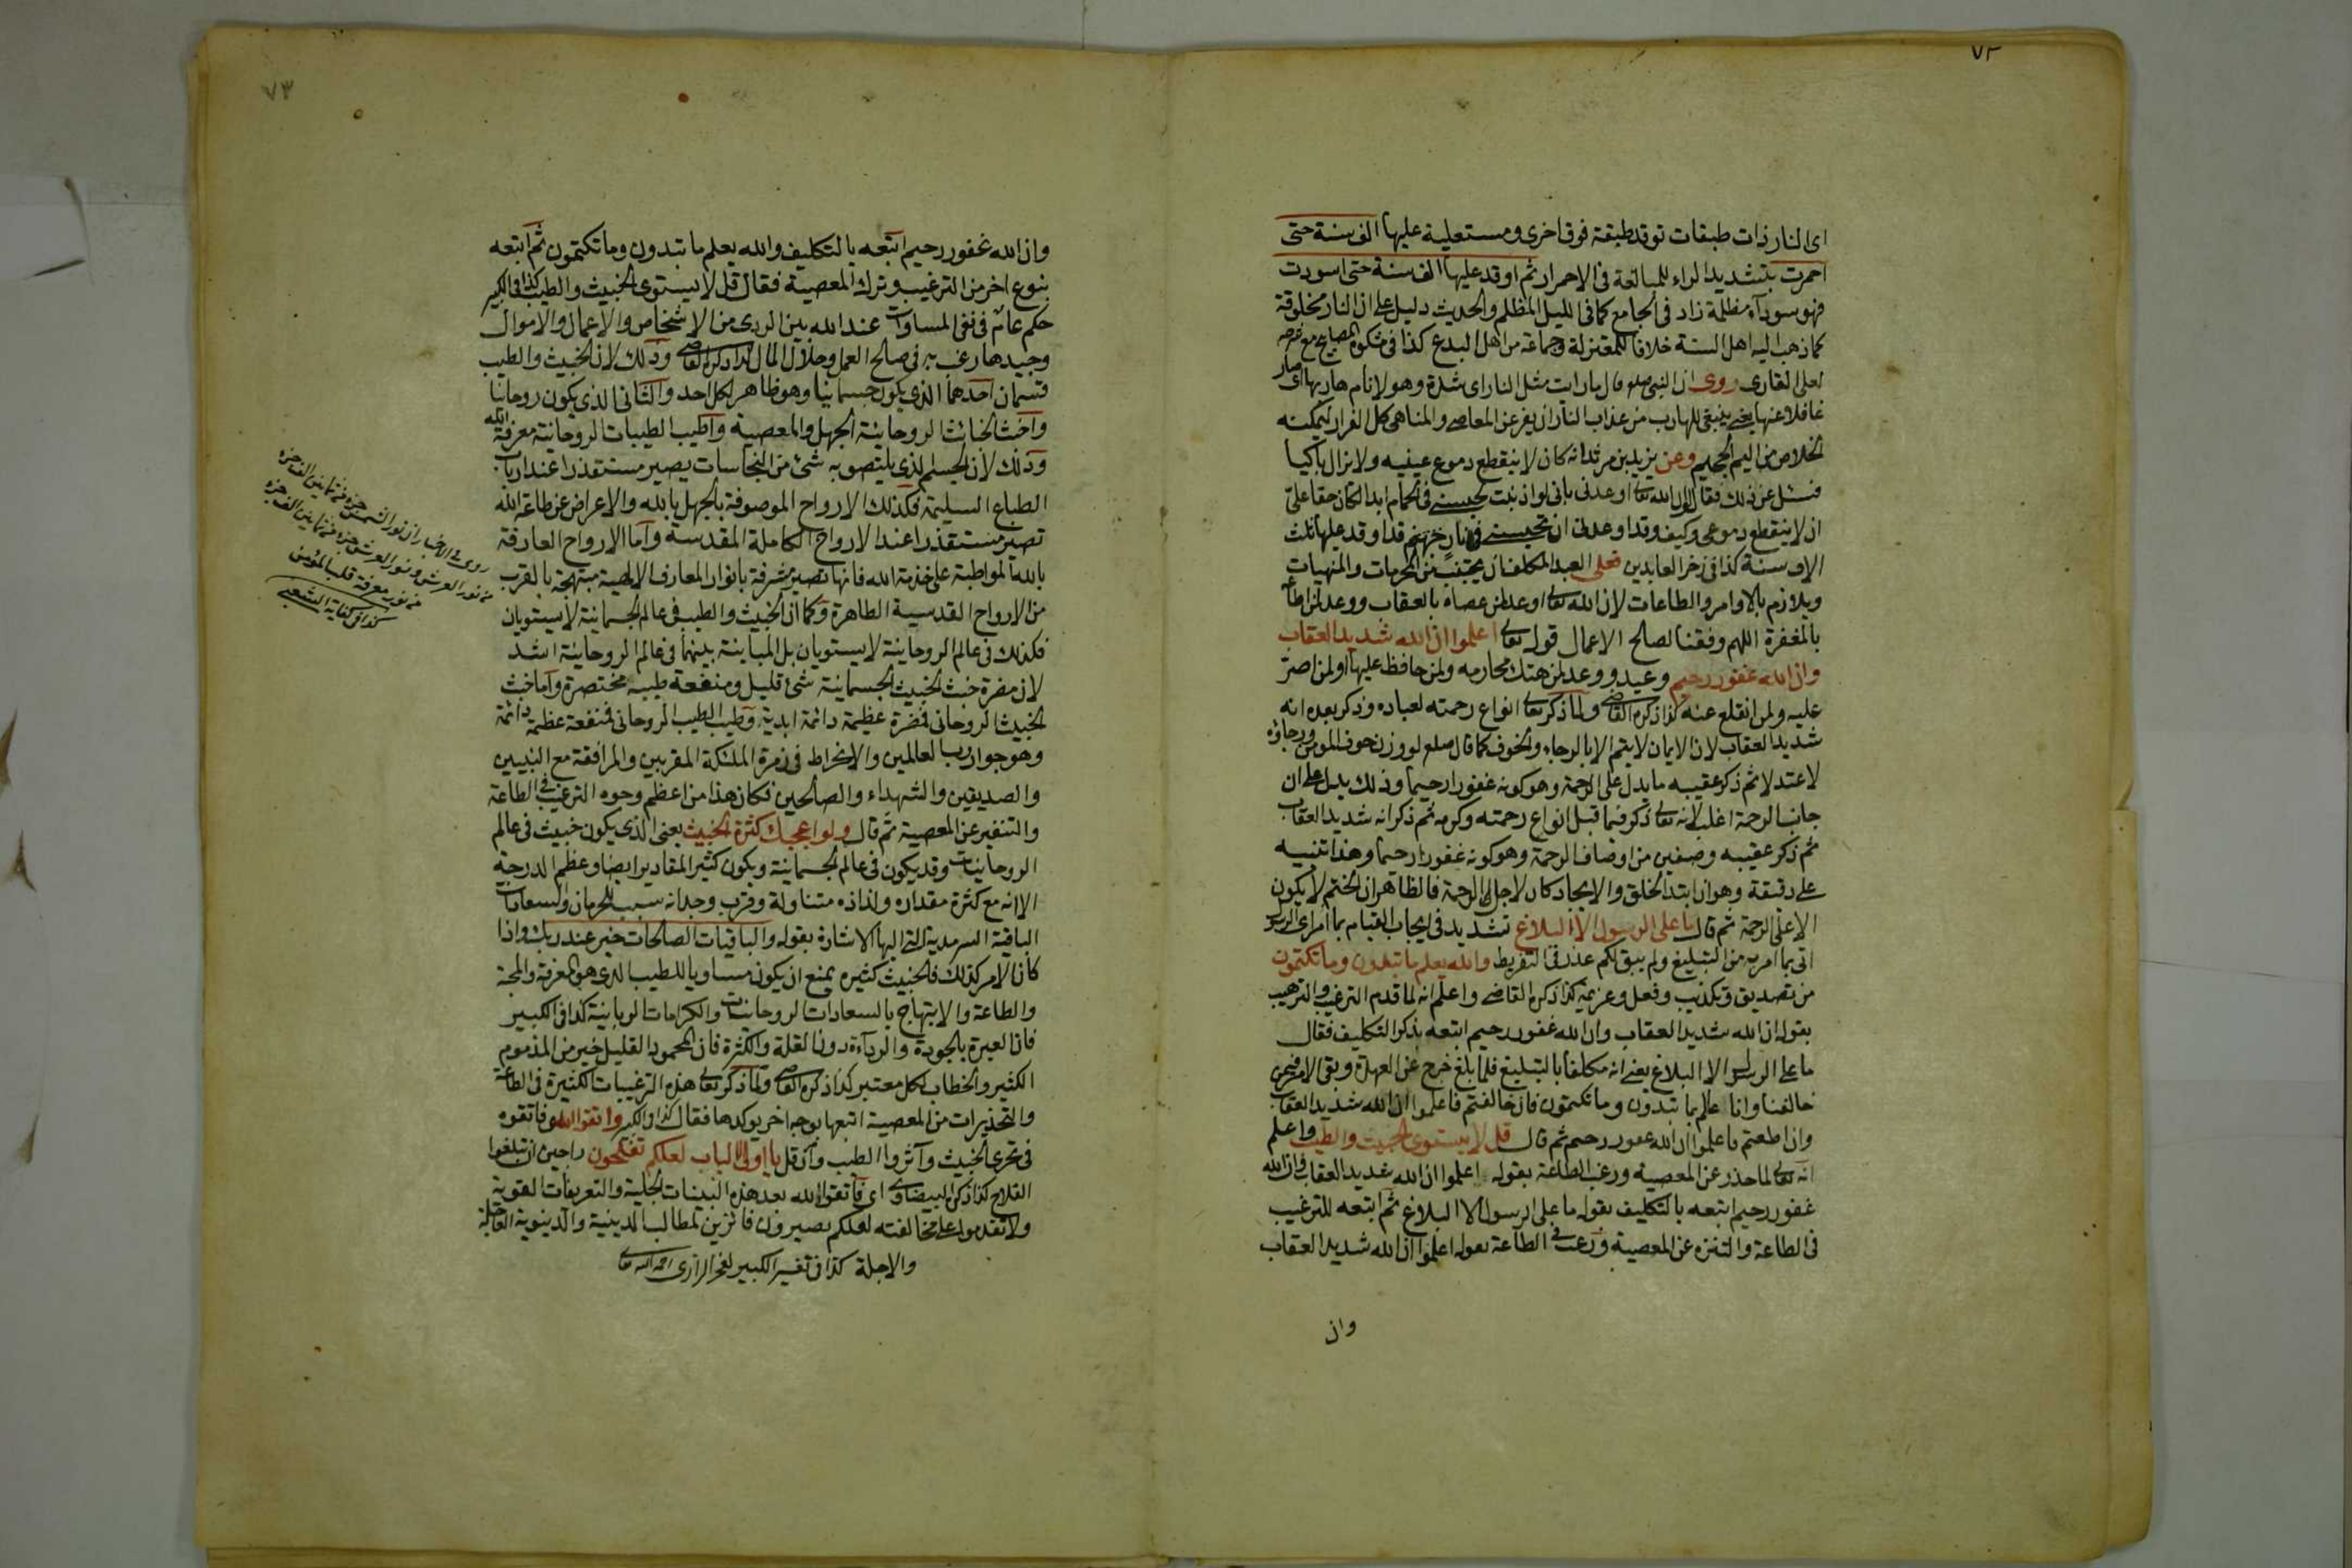 ٧٢
اى النار ذات طبقات توقد طبقة فوق اخرى ومستعلية عليها الف سنة حتى
احمرت بتشديد الراء للمبالغة فى الاحمرار ثم اوقد عليها الف سنة حتى اسودت
فهو سوداء مظلمة زاد فى الجامع كما فى الليل المظلم والحديث دليل على ان النار مخلوقة
كما ذهب اليه اهل السنة خلافا للمعتزلة وجماعة من اهل البدع كذا فى مشكوة المصابيح مع شرحه
لعلى القارى روى ان النبى صلعم قال ما رايت مثل النار اى شدة وهولا نام هاربها اى صار
غافلا عنها يعنى ينبغى للهارب من عذاب النار ان يفر عن المعاصى والمناهى كل الفرار ليمكنه
الخلاص من اليم الجحيم وعن يزيد بن مرثد انه كان لا ينقطع دموع عينيه ولا يزال باكيا
فسئل عن ذلك فقال لو ان الله تعالى اوعدنى بانى لو اذنبت لحبسنى فى الحمام ابدا لكان حقا على
ان لا ينقطع دموعى وكيف وقد اوعدنى ان تحبسنى فى نار جهنم قد اوقد عليها ثلث
الاف سنة كذا فى ذخر العابدين فعلى العبد المكلف ان يجتنب من المحرمات والمنهيات
ويلازم بالاوامر والطاعات لان الله تعالى اوعد لمن عصاه بالعقاب ووعد لمن اطاعه
بالمغفرة اللهم وفقنا لصالح الاعمال قوله تعالى اعلموا ان الله شديد العقاب
وان الله غفور رحيم وعيد ووعد لمن هتك محارمه ولمن حافظ عليها او لمن اصر
عليه ولمن انقلع عنه كذا ذكره القاضى ولما ذكر تعالى انواع رحمته لعباده وذكر بعده انه
شديد العقاب لان الايمان لا يتم الا بالرجاء والخوف كما قال صلعم لو وزن خوف المؤمن ورجاؤه
لاعتدلا ثم ذكر عقيبه ما يدل على الرحمة وهو كونه غفورا رحيما وذلك يدل على ان
جانب الرحمة اغلب لانه تعالى ذكر فيما قبل انواع رحمته وكرمه ثم ذكر انه شديد العقاب
ثم ذكر عقيبه وصفين من اوصاف الرحمة وهو كونه غفورا رحيما وهذا تنبيه
على دقيقة وهو ان ابتدا الخلق والايجاد كان لاجل الرحمة فالظاهر ان الختم لا يكون
الا على الرحمة ثم قال ما على الرسول الا البلاغ تشديد فى ايجاب القيام بما امر اى الرسول
اتى بما امر به من التبليغ ولم يبق لكم عذر فى التفريط والله يعلم ما تبدون وما تكتمون
من تصديق وتكذيب وفعل وعزيمة كذا ذكره القاضى واعلم انه لما قدم الترغيب والترهيب
بقوله ان الله شديد العقاب وان الله غفور رحيم ابتعه بذكر التكليف فقال
ما على الرسول الا البلاغ يعنى انه مكلفا بالتبليغ فلما بلغ خرج عن العهدة وبقى الامر
خالفنا وانا عالم بما تبدون وما تكتمون فان خالفتم فاعلموا ان الله شديد العقاب
وان اطعتم فاعلموا ان الله غفور رحيم ثم قال قل لا يستوى الخبيث والطيب واعلم
انه تعالى لما حذر عن المعصية ورغب الطاعة بقوله اعلموا ان الله شديد العقاب وان الله
غفور رحيم ابتعه بالتكليف بقوله ما على الرسول الا البلاغ ثم ابتعه للترغيب
فى الطاعة والتنزه عن المعصية ورغب فى الطاعة بقوله اعلموا ان الله شديد العقاب
وان
٧٣
وان الله غفور رحيم ابتعه بالتكليف والله يعلم ما تبدون وما تكتمون ثم ابتعه
بنوع اخر من الترغيب وترك المعصية فقال قل لا يستوى الخبيث والطيب كذا فى الكبير
حكم عام فى نفى المساوات عند الله بين الردى من الاشخاص والاعمال والاموال
وجيدها رغب به فى صالح العمل وحلال المال كذا ذكره القاضى وذلك لان الخبيث والطيب
قسمان احدهما الذى يكون جسمانيا وهو ظاهر لكل احد والثانى الذى يكون روحانيا
واخبث الخبائث الروحانية الجهل والمعصية واطيب الطيبات الروحانية معرفة الله
وذلك لان الجسم الذى يلتصق به شئ من النجاسات يصير مستقذرا عند ارباب
الطباع السليمة فكذلك الارواح الموصوفة بالجهل بالله والاعراض عن طاعة الله
تصير مستقذرا عند الارواح الكاملة المقدسة واما الارواح العارفة
بالله المواظبة على خدمة الله فانها تصير مشرفة بانوار المعارف الالهية مبتهجة بالقرب
من الارواح القدسية الطاهرة وكما ان الخبيث والطيب فى عالم الجسمانية لا يستويان
فكذلك فى عالم الروحانية لا يستويان بل المباينة بينهما فى عالم الروحانية اشد
لان مضرة خبث الخبيث الجسمانية شئ قليل ومنفعة طيبه مختصرة واما خبث
الخبيث الروحانى فمضرة عظيمة دائمة ابدية وطيب الطيب الروحانى فمنفعة عظمة دائمة
وهو جوار رب العالمين والانخراط فى زمرة الملئكة المقربين والمرافقة مع النبيين
والصديقين والشهداء والصالحين فكان هذا من اعظم وجوه الترغيب فى الطاعة
والتنفير عن المعصية ثم قال ولو اعجبك كثرة الخبيث يعنى الذى يكون خبيث فى عالم
الروحانيات وقد يكون فى عالم الجسمانية ويكون كثير المقادير ايضا وعظم الدرجة
الا انه مع كثرة مقداره ولذاذه متناولة وقرب وجدانه سبب للحرمان والسعادات
الباقية السرمدية التى اليها الاشارة بقوله والباقيات الصالحات خير عند ربك واذا
كان الامر كذلك فالخبيث كثيره يمنع ان يكون مساويا للطيب الذى هو المعرفة والمحبة
والطاعة والابتهاج بالسعادات الروحانيات والكرامات الربانية كذا فى الكبير
فان العبرة بالجودة والرداءة دون القلة والكثرة فان المحمود القليل خير من المذموم
الكثير والخطاب لكل معتبر كذا ذكره القاضى ولما ذكر تعالى هذه الترغيبات الكثيرة فى الطاعة
والتحذيرات من المعصية اتبعها بوجه اخر يوكدها فقال كذا فى الكبير واتقوا الله فاتقوه
فى تحرى الخبيث وآثروا الطيب وان قل يا اولى الالباب لعلكم تفلحون راجين ان تبلغوا
الفلاح كذا ذكره البيضاوى اى فاتقوا الله بعد هذه البينات الجلية والتعريفات القوية
ولا تقدموا على مخالفته لعلكم تصيرون فائزين لمطالب الدينية والدنيوية العاجلة
والاجلة كذا فى تفسير الكبير لفخر الرازى رحمه الله تعالى
روى فى الاخبار ان نور الشمس جزء من ثمانين الف جزء
من نور العرش ونور العرش جزء من ثمانين الف جزء
من نور معرفة قلب المؤمن
كذا فى كفاية الشعبى